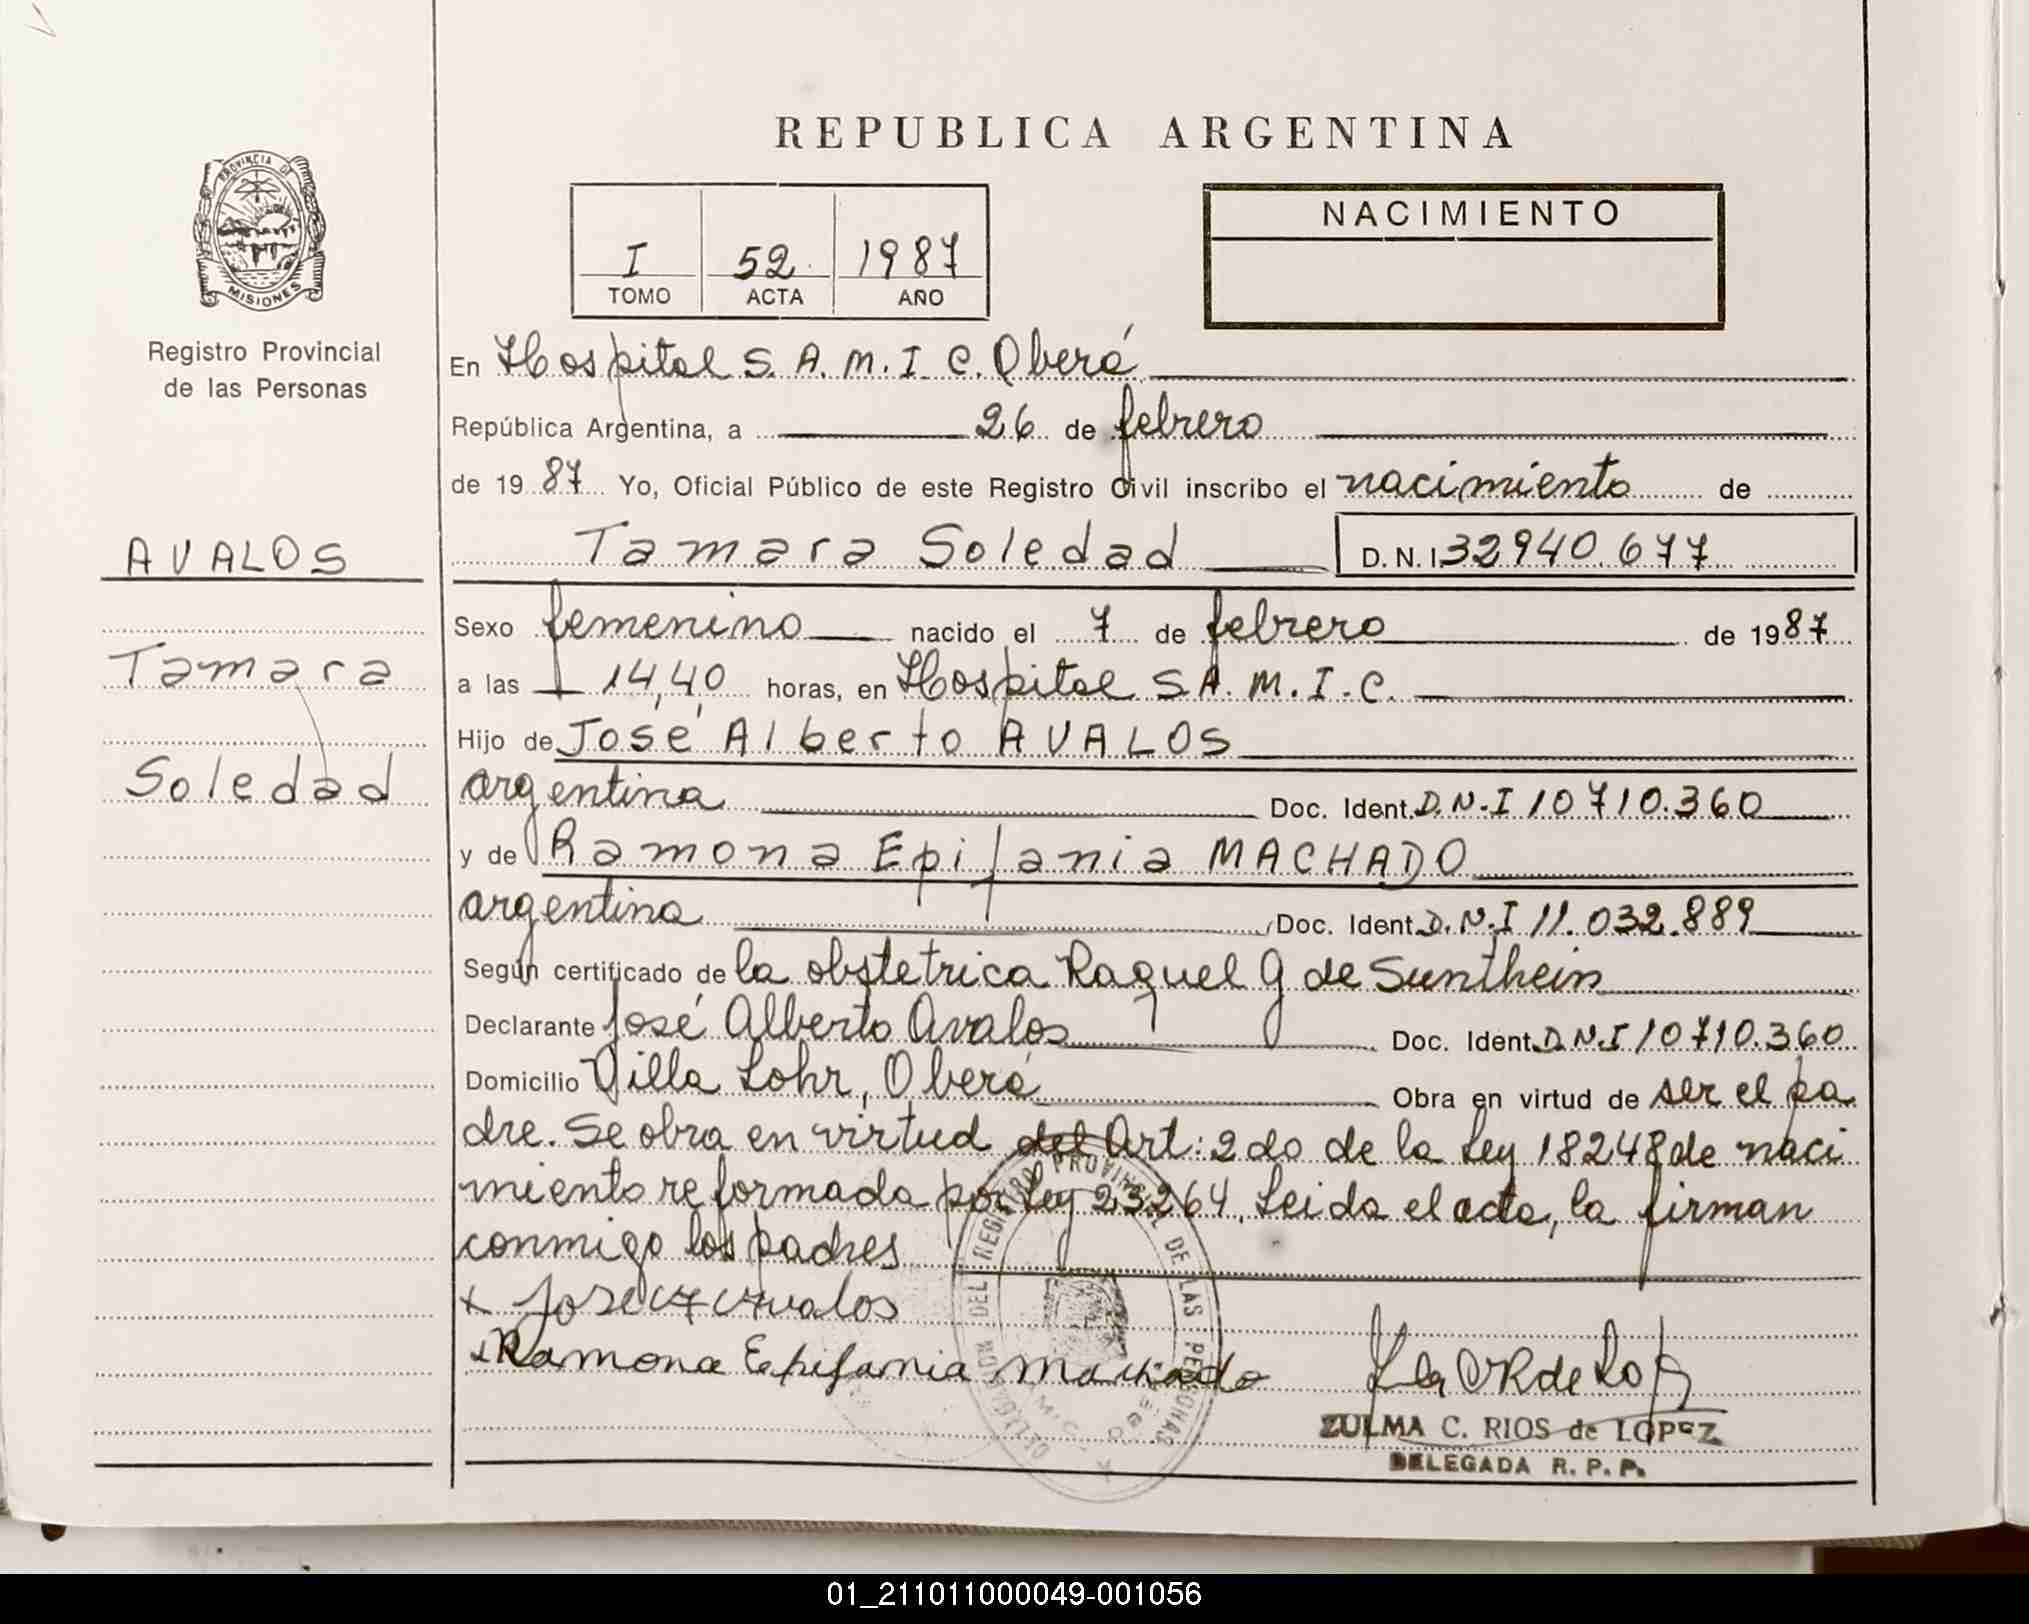 REPUBLICA ARGENTINA
PROVINCIA DE
MISIONES
Registro Provincial
de las Personas
I 52 1987
TOMO ACTA AÑO
NACIMIENTO
En Hospital S.A.M.I.C. Oberá
República Argentina, a 26 de febrero
de 1987 Yo, Oficial Público de este Registro Civil inscribo el nacimiento de
Tamara Soledad D.N.I 32940.677
AVALOS
Tamara
Soledad
Sexo femenino nacido el 7 de febrero de 1987
a las 14,40 horas, en Hospital S.A.M.I.C.
Hijo de José Alberto AVALOS
argentina Doc. Ident. D.N.I 10710.360
y de Ramona Epifania MACHADO
argentina Doc. Ident. D.N.I 11.032.889
Según certificado de la obstetrica Raquel G de Sunthein
Declarante José Alberto Avalos Doc. Ident. D.N.I 10710.360
Domicilio Villa Lohr, Oberá Obra en virtud de ser el pa
dre. Se obra en virtud del Art: 2do de la Ley 18248 de naci
miento reformada por Ley 23264. Leida el acta, la firman
conmigo los padres
x Jose A Avalos
x Ramona Epifania Machado
DELEGACION DEL REGISTRO PROVINCIAL DE LAS PERSONAS
ZULMA C. RIOS de LOPEZ
DELEGADA R. P. P.
01_211011000049-001056